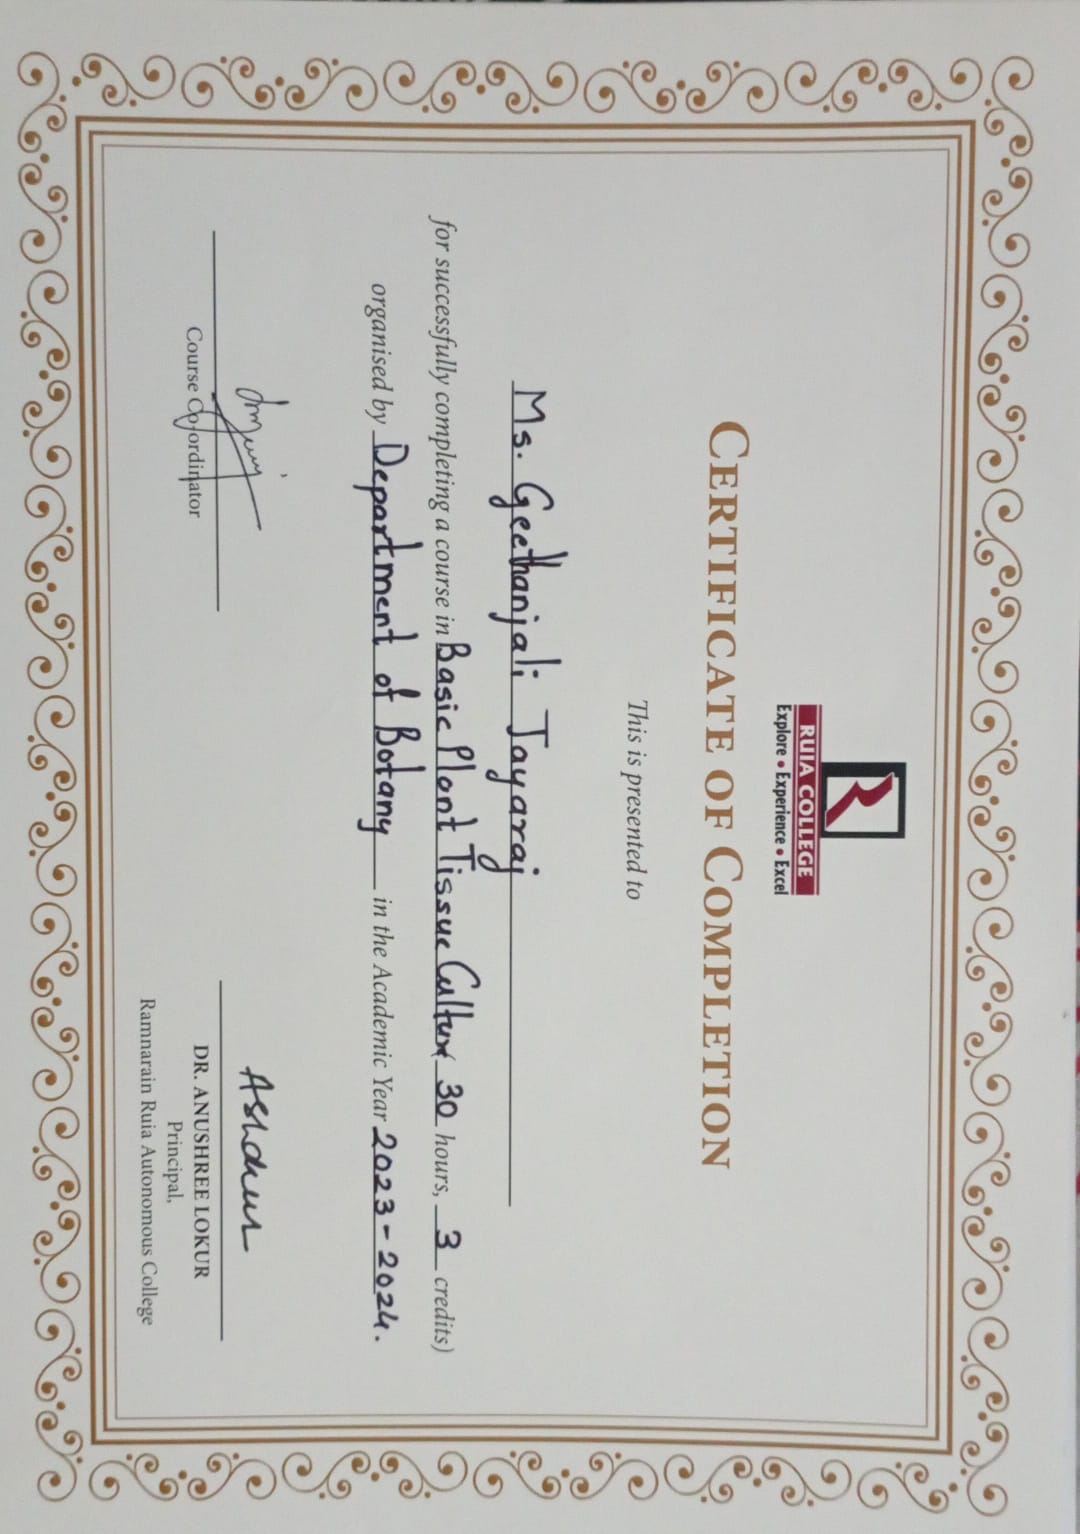 RUIA COLLEGE
Explore • Experience • Excel
CERTIFICATE OF COMPLETION
This is presented to
Ms. Geethanjali Jayaraj
for successfully completing a course in Basic Plant Tissue Culture 30 hours, 3 credits)
organised by Department of Botany in the Academic Year 2023-2024.
Ashokur
Course Co-ordinator
DR. ANUSHREE LOKUR
Principal,
Ramnarain Ruia Autonomous College